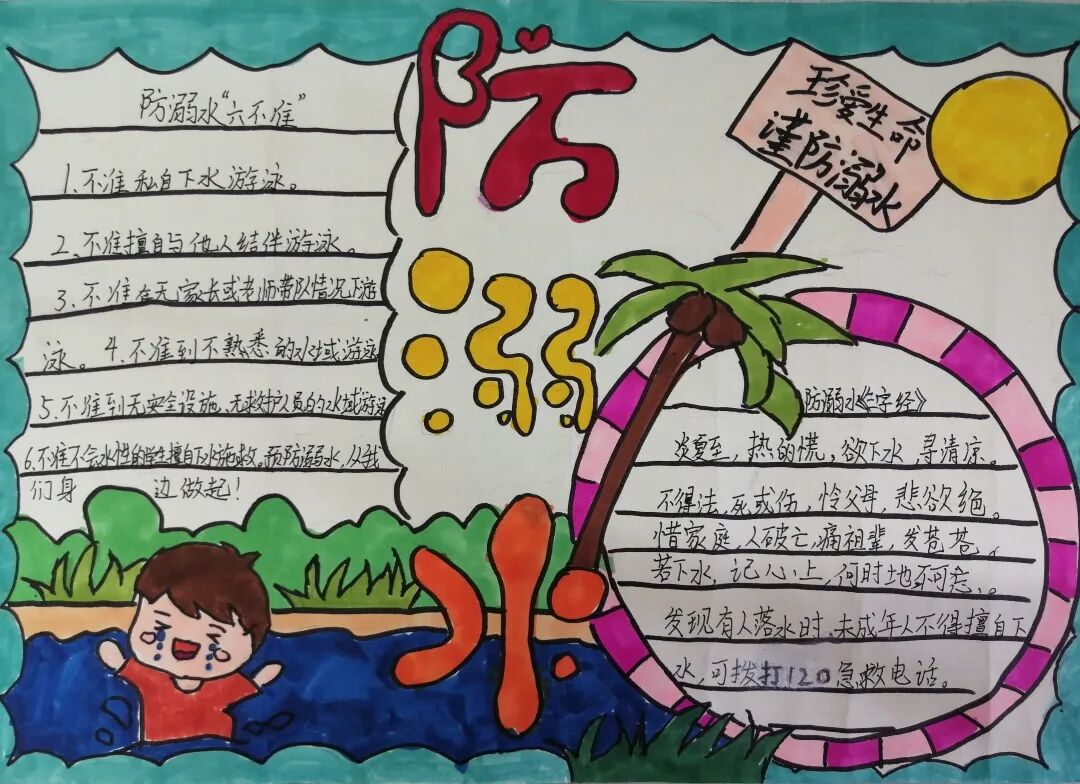 防溺水“六不准”
1、不准私自下水游泳。
2、不准擅自与他人结伴游泳。
3、不准在无家长或老师带队情况下游
泳。 4、不准到不熟悉的水域游泳
5、不准到无安全设施、无救护人员的水域游泳
6、不准不会水性的学生擅自下水施救。预防溺水，从我
们身 边做起！
防溺水
珍爱生命
谨防溺水
防溺水《三字经》
炎夏至，热的慌，欲下水，寻清凉。
不得法，死或伤，怜父母，悲欲绝。
惜家庭，人破亡，痛祖辈，发苍苍。
若下水，记心上，何时地不可忘。
发现有人落水时，未成年人不得擅自下
水，可拨打120急救电话。